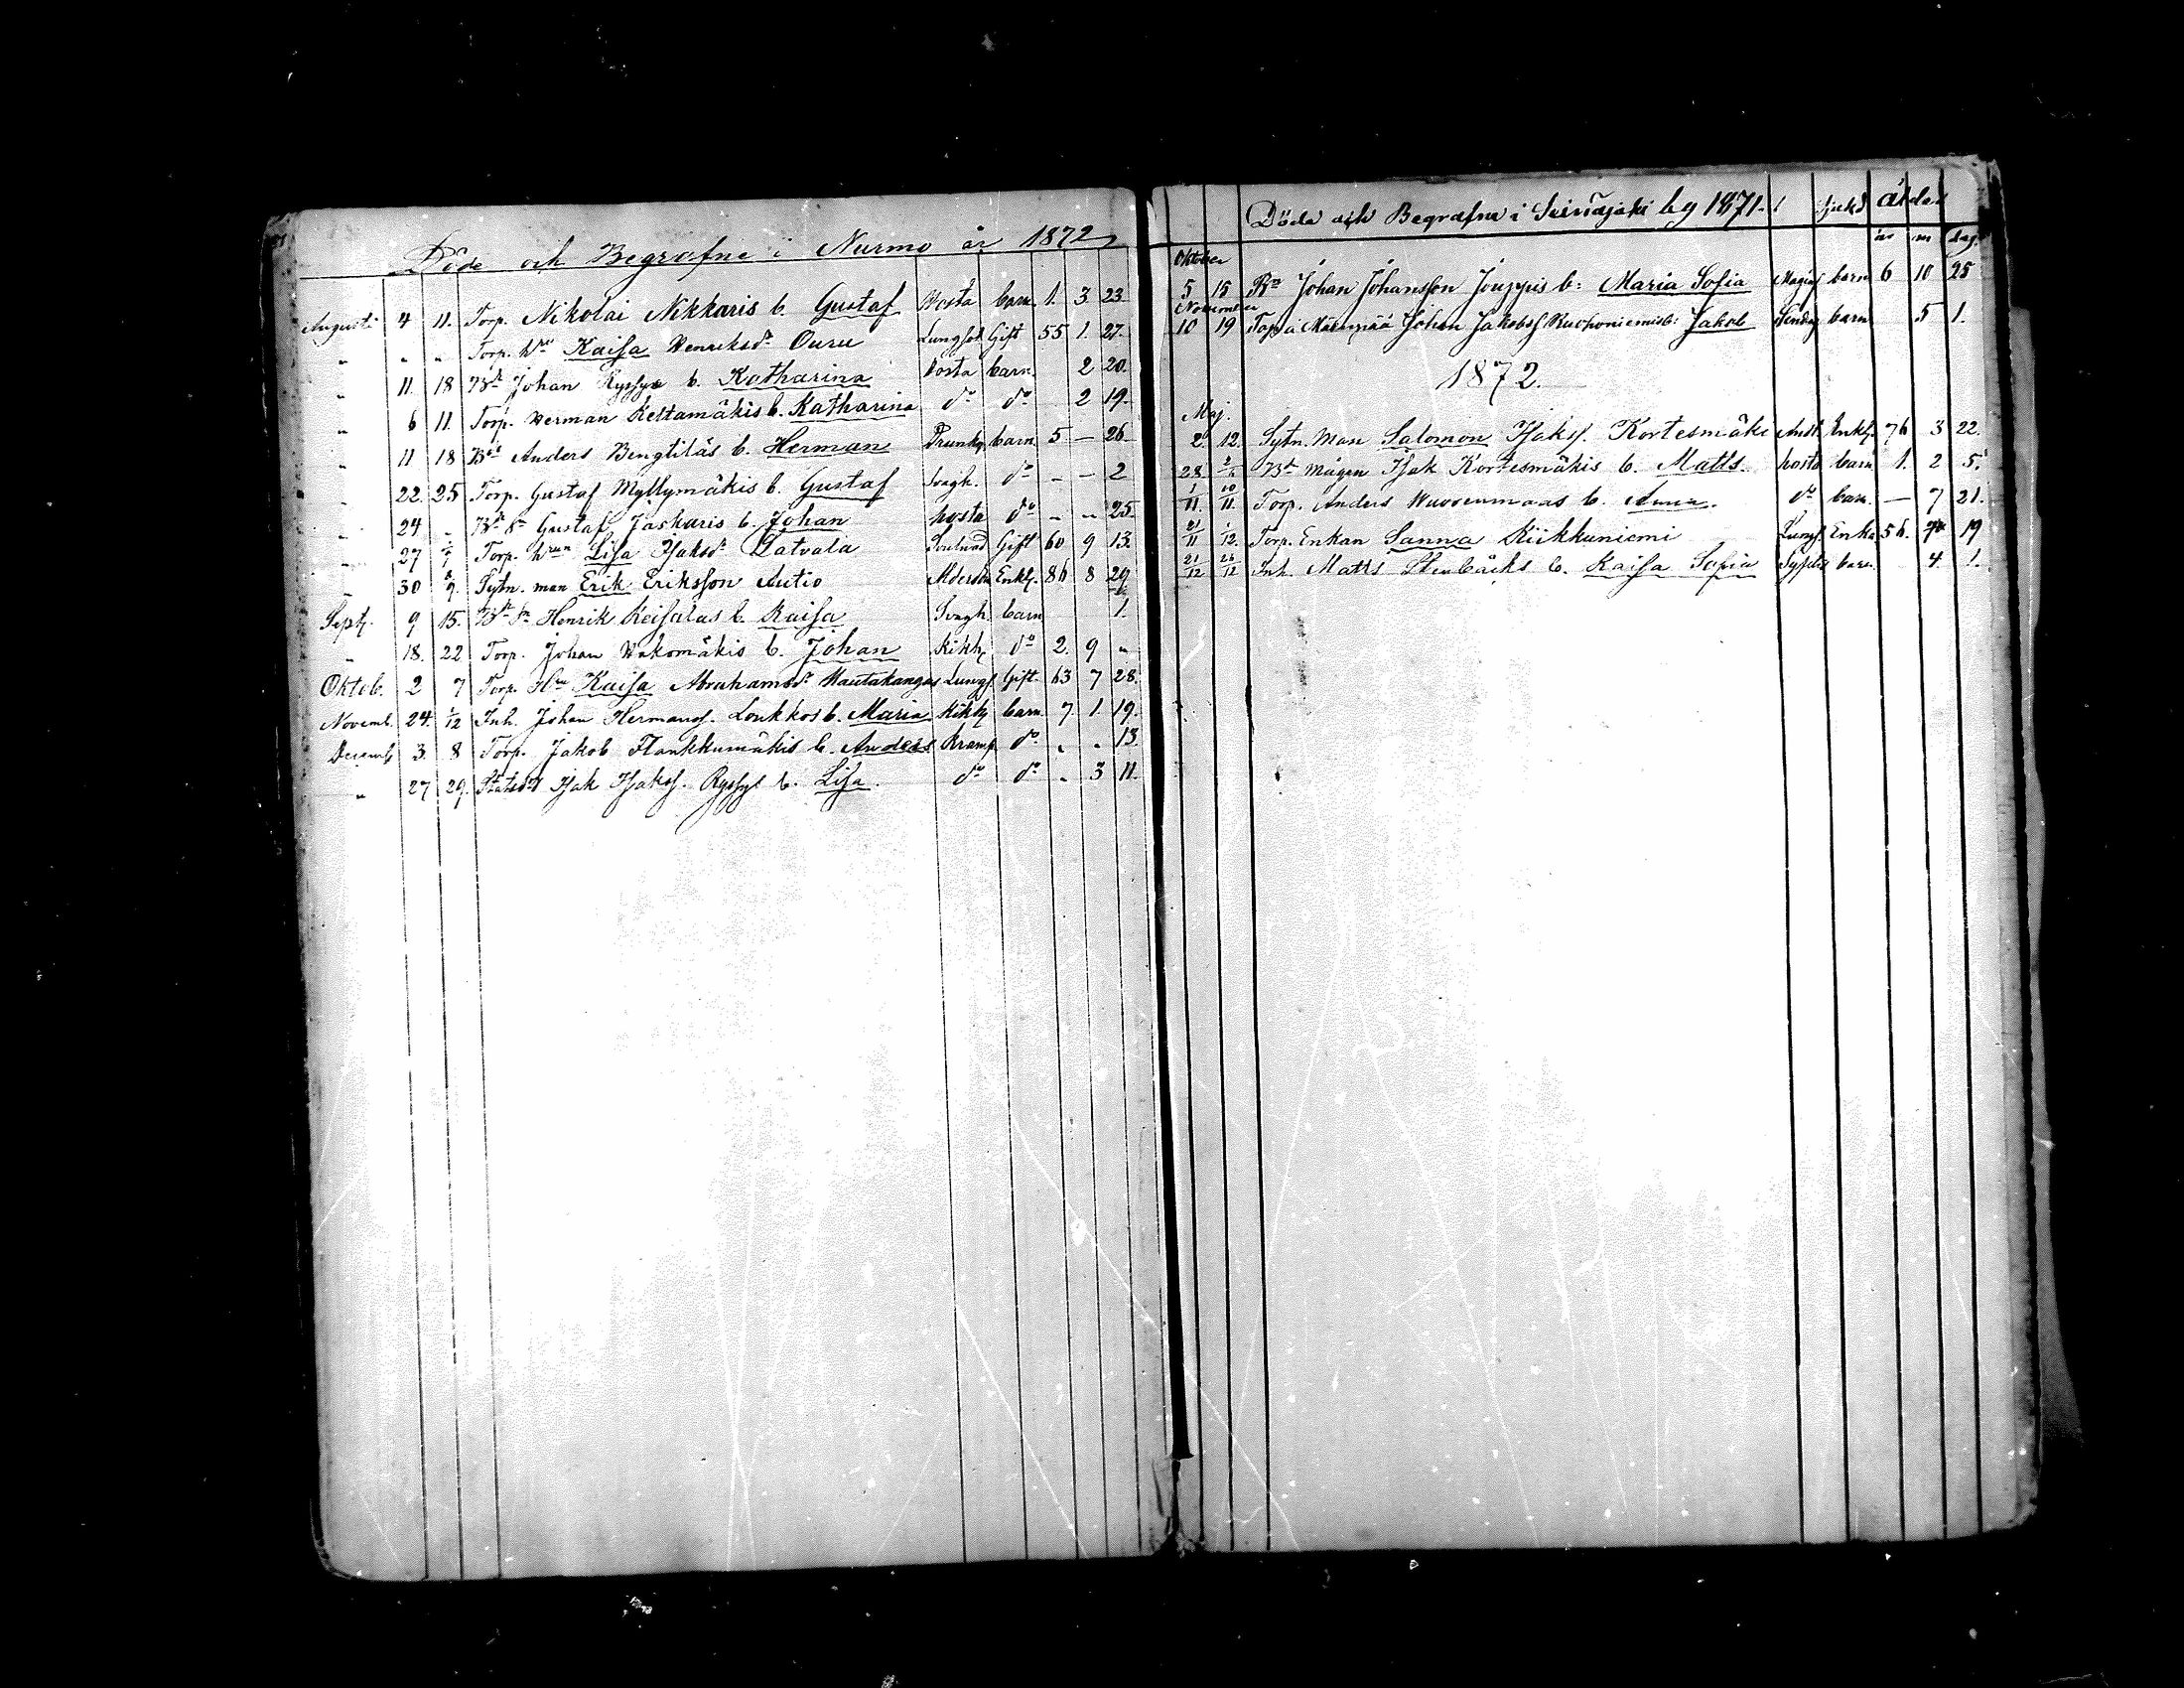 Döde och Begrafne i Nurmo år 1872
Augusti 4 11. Torp. Nikolai Nikkaris b. Gustaf Hosta barn 1. 3 23
" " " Torp. Hru Kaisa Henriksdr Ouru Lungsot Gift 55 1. 27.
" 11. 18 Johan Ryssys b. Katharina Hosta barn. 2 20.
" 6 11. Torp. Herman Kettamäkis b. Katharina do do 2 19.
" 11 18 Anders Bengtiläs b. Herman Drunkn. barn 5 — 26
" 22. 25 Torp. Gustaf Myllymäkis b. Gustaf Svagh. do — — 2
" 24 " Gustaf Jaskaris b. Johan hosta do " " 25.
" 27 Torp. hrun Lisa Isaksdr Latvala Gift 60 9 13.
" 30 Sytn. man Erik Eriksson Autio Enkl. 86 8 29
Septb. 9 15. Henrik Keisalas b. Kaisa Svagh. barn 1.
" 18. 22 Torp. Johan Wakomäkis b. Johan Kikh. do 2. 9 "
Oktob. 2 7 Torp. Hru Kaisa Abrahamsdr Hautakangas Lungs. Gift 63 7 28.
Novemb. 24. 1/12 Inh. Johan Hermanss. Loukkos b. Maria Kikh. barn. 7. 1. 19.
Decemb. 3. 8 Torp. Jakob Flankkumäkis b. Anders Kramp do " " 13.
" 27 29. Isak Isakss. Ryssys b. Lisa. do do " 3 11.
Döda och Begrafne i Seinäjoki by 1871. sjukd ålder
år m dag.
Oktober
5 15 Johan Johansson Jouppis b: Maria Sofia barn 6 10 25
November
10 19 Torp. å Mäenpää Johan Jakobss Ruohoniemis b: Jakob barn 5 1.
1872.
Maj.
2. 12. Sytn. Man Salomon Isakss. Kortesmäki Enkl. 76 3 22.
28. mågen Isak Kortesmäkis b. Matts. hosta barn 1. 2 5.
1/11. 10/11. Torp. Anders Wuorenmaas b. Anna. do barn. — 7 21.
21/11 1/12. Torp. Enkan Sanna Kiikkuniemi Lungs. Enka 56. 19
21/12 26/12 Inh. Matts Stenbäcks b. Kaisa Sofia barn. 4. 1.